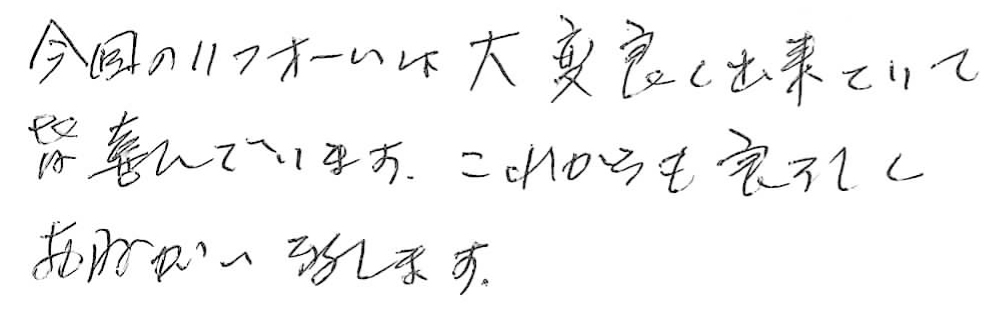 今回のリフォームは大変良く出来ていて
皆喜んでいます。これからも宜しく
お願い致します。